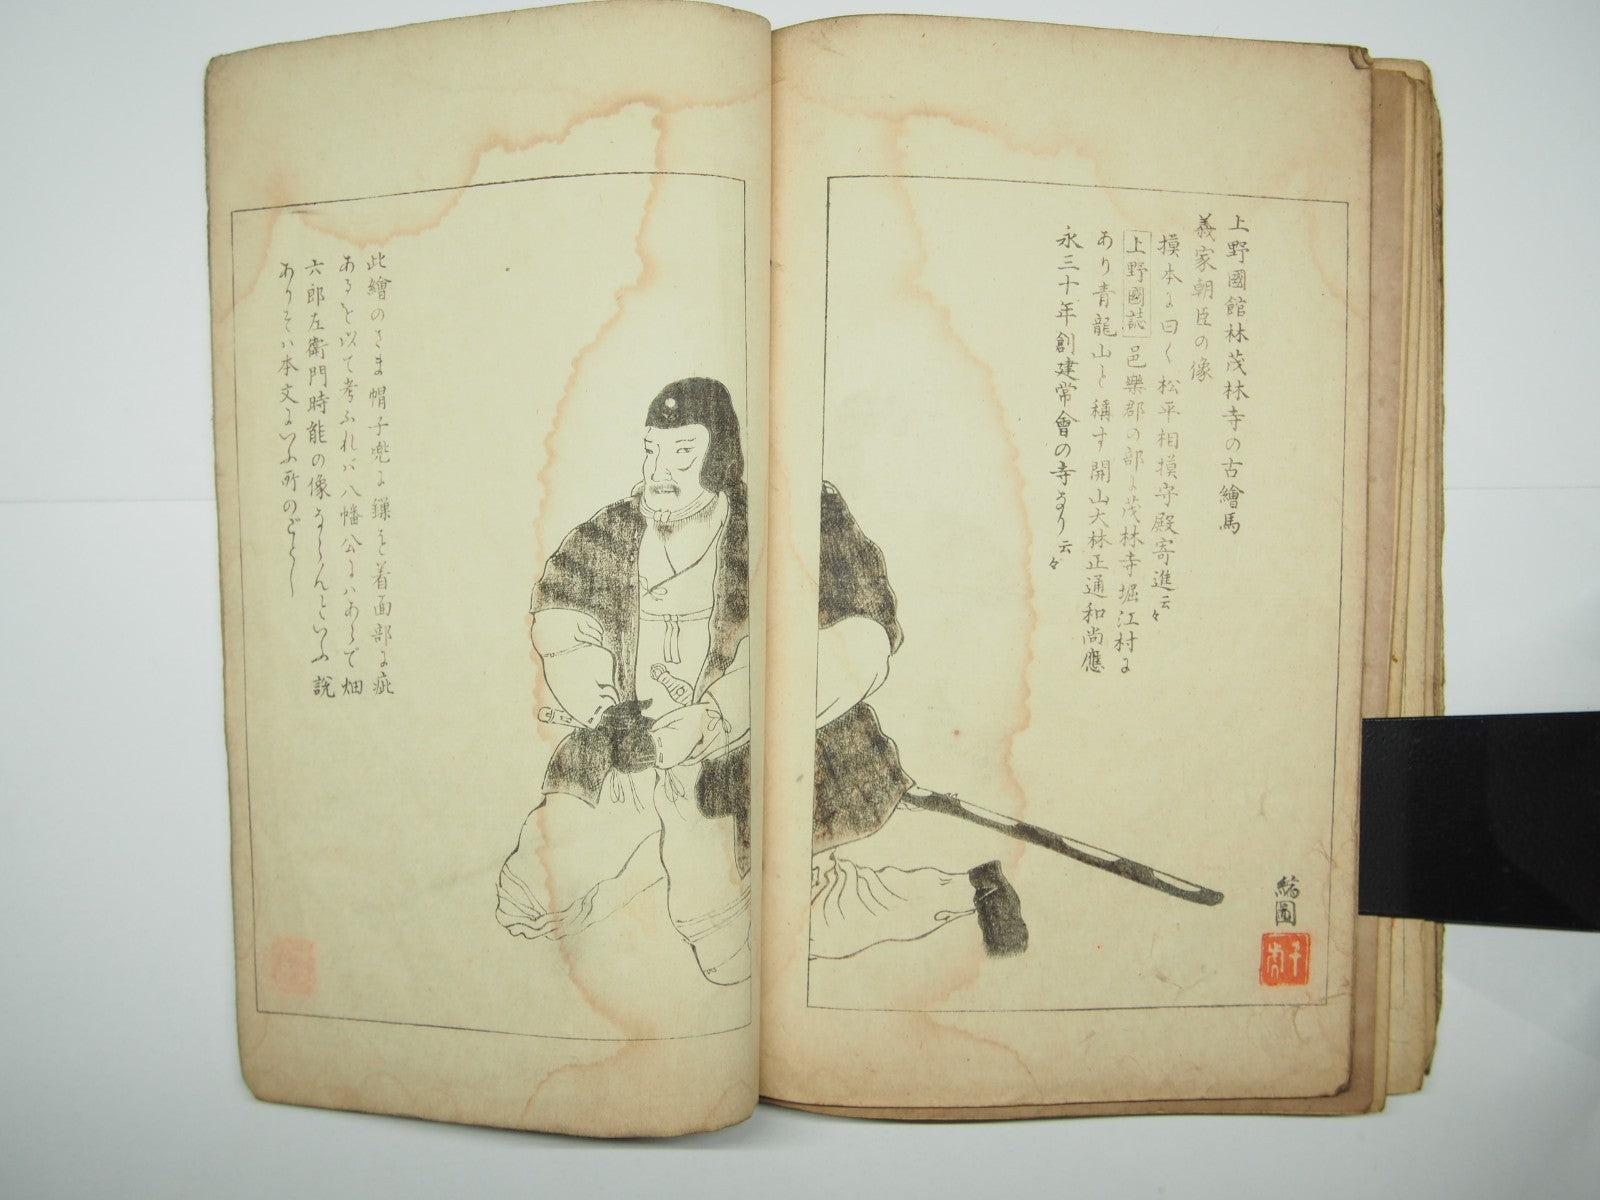 上野國館林茂林寺の古繪馬
義家朝臣の像
摸本に曰く松平相摸守殿寄進云々
上野國誌邑樂郡の部に茂林寺堀江村に
あり青龍山と稱す開山大林正通和尚應
永三十年創建常會の寺なり云々
縮圖
此繪のさま帽子兜に鎌を着面部に疵
あるを以て考ふれバ八幡公にハあらで畑
六郎左衛門時能の像ならんといふ説
ありそハ本文にいふ所のごとし